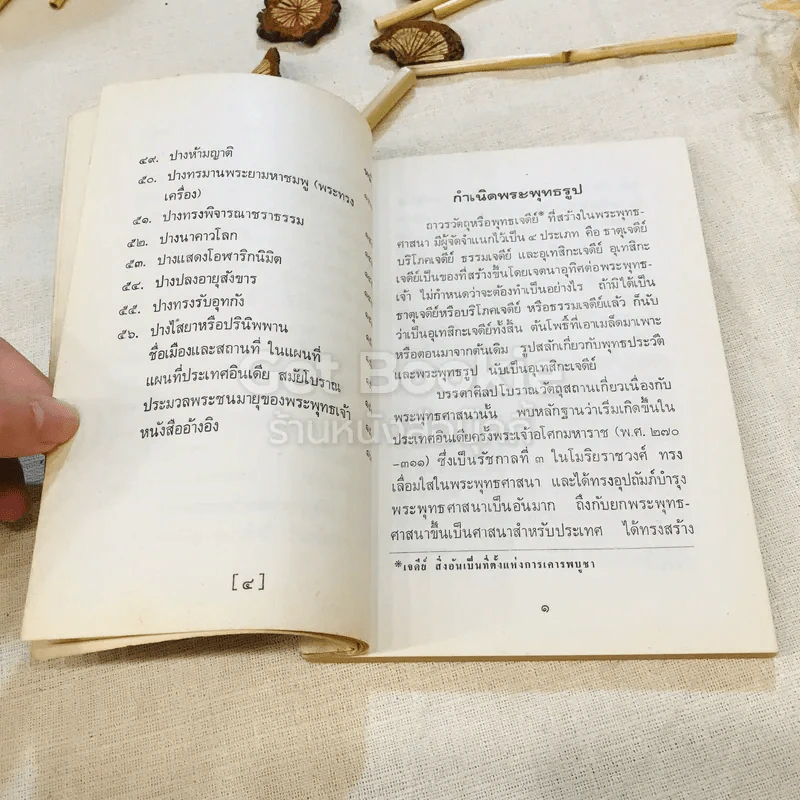 ๔๙. ปางห้ามญาติ
๕๐. ปางทรมานพระยามหาชมพู (พระทรง
เครื่อง)
๕๑. ปางทรงพิจารณาชราธรรม
๕๒. ปางนาคาวโลก
๕๓. ปางแสดงโอฬาริกนิมิต
๕๔. ปางปลงอายุสังขาร
๕๕. ปางทรงรับอุทกัง
๕๖. ปางไสยาหรือปรินิพพาน
ชื่อเมืองและสถานที่ ในแผนที่
แผนที่ประเทศอินเดีย สมัยโบราณ
ประมวลพระชนมายุของพระพุทธเจ้า
หนังสืออ้างอิง
[ ๔ ]
กำเนิดพระพุทธรูป
ถาวรวัตถุหรือพุทธเจดีย์* ที่สร้างในพระพุทธ-
ศาสนา มีผู้จัดจำแนกไว้เป็น ๔ ประเภท คือ ธาตุเจดีย์
บริโภคเจดีย์ ธรรมเจดีย์ และอุเทสิกะเจดีย์ อุเทสิกะ
เจดีย์เป็นของที่สร้างขึ้นโดยเจตนาอุทิศต่อพระพุทธ-
เจ้า ไม่กำหนดว่าจะต้องทำเป็นอย่างไร ถ้ามิได้เป็น
ธาตุเจดีย์หรือบริโภคเจดีย์ หรือธรรมเจดีย์แล้ว ก็นับ
ว่าเป็นอุเทสิกะเจดีย์ทั้งสิ้น ต้นโพธิ์ที่เอาเมล็ดมาเพาะ
หรือตอนมาจากต้นเดิม รูปสลักเกี่ยวกับพุทธประวัติ
และพระพุทธรูป นับเป็นอุเทสิกะเจดีย์
บรรดาศิลปโบราณวัตถุสถานเกี่ยวเนื่องกับ
พระพุทธศาสนานั้น พบหลักฐานว่าเริ่มเกิดขึ้นใน
ประเทศอินเดียครั้งพระเจ้าอโศกมหาราช (พ.ศ. ๒๗๐
-๓๑๑) ซึ่งเป็นรัชกาลที่ ๓ ในโมริยราชวงศ์ ทรง
เลื่อมใสในพระพุทธศาสนา และได้ทรงอุปถัมภ์บำรุง
พระพุทธศาสนาเป็นอันมาก ถึงกับยกพระพุทธ-
ศาสนาขึ้นเป็นศาสนาสำหรับประเทศ ได้ทรงสร้าง
*เจดีย์ สิ่งอันเป็นที่ตั้งแห่งการเคารพบูชา
๑